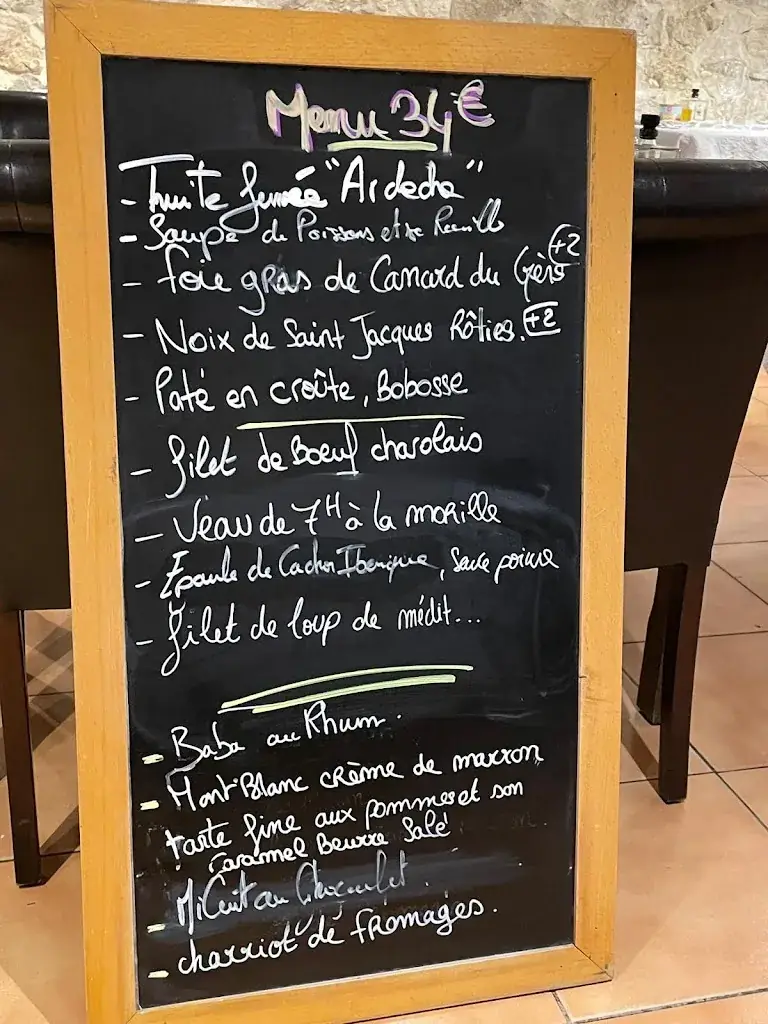 Menu 34€
- Truite fumée "Ardeche"
- Soupe de Poissons et sa Rouille
- foie gras de Canard du Gers +2
- Noix de Saint Jacques Rôties. +2
- Paté en croûte, Bobosse
- filet de Boeuf charolais
- Veau de 7H à la morille
- Epaule de Cochon Iberique, sauce poivre
- filet de loup de médit...
- Baba au Rhum.
- Mont Blanc crème de marron
tarte fine aux pommes et son
Caramel Beurre Salé
- MiCuit au Chocolat.
- charriot de fromages.